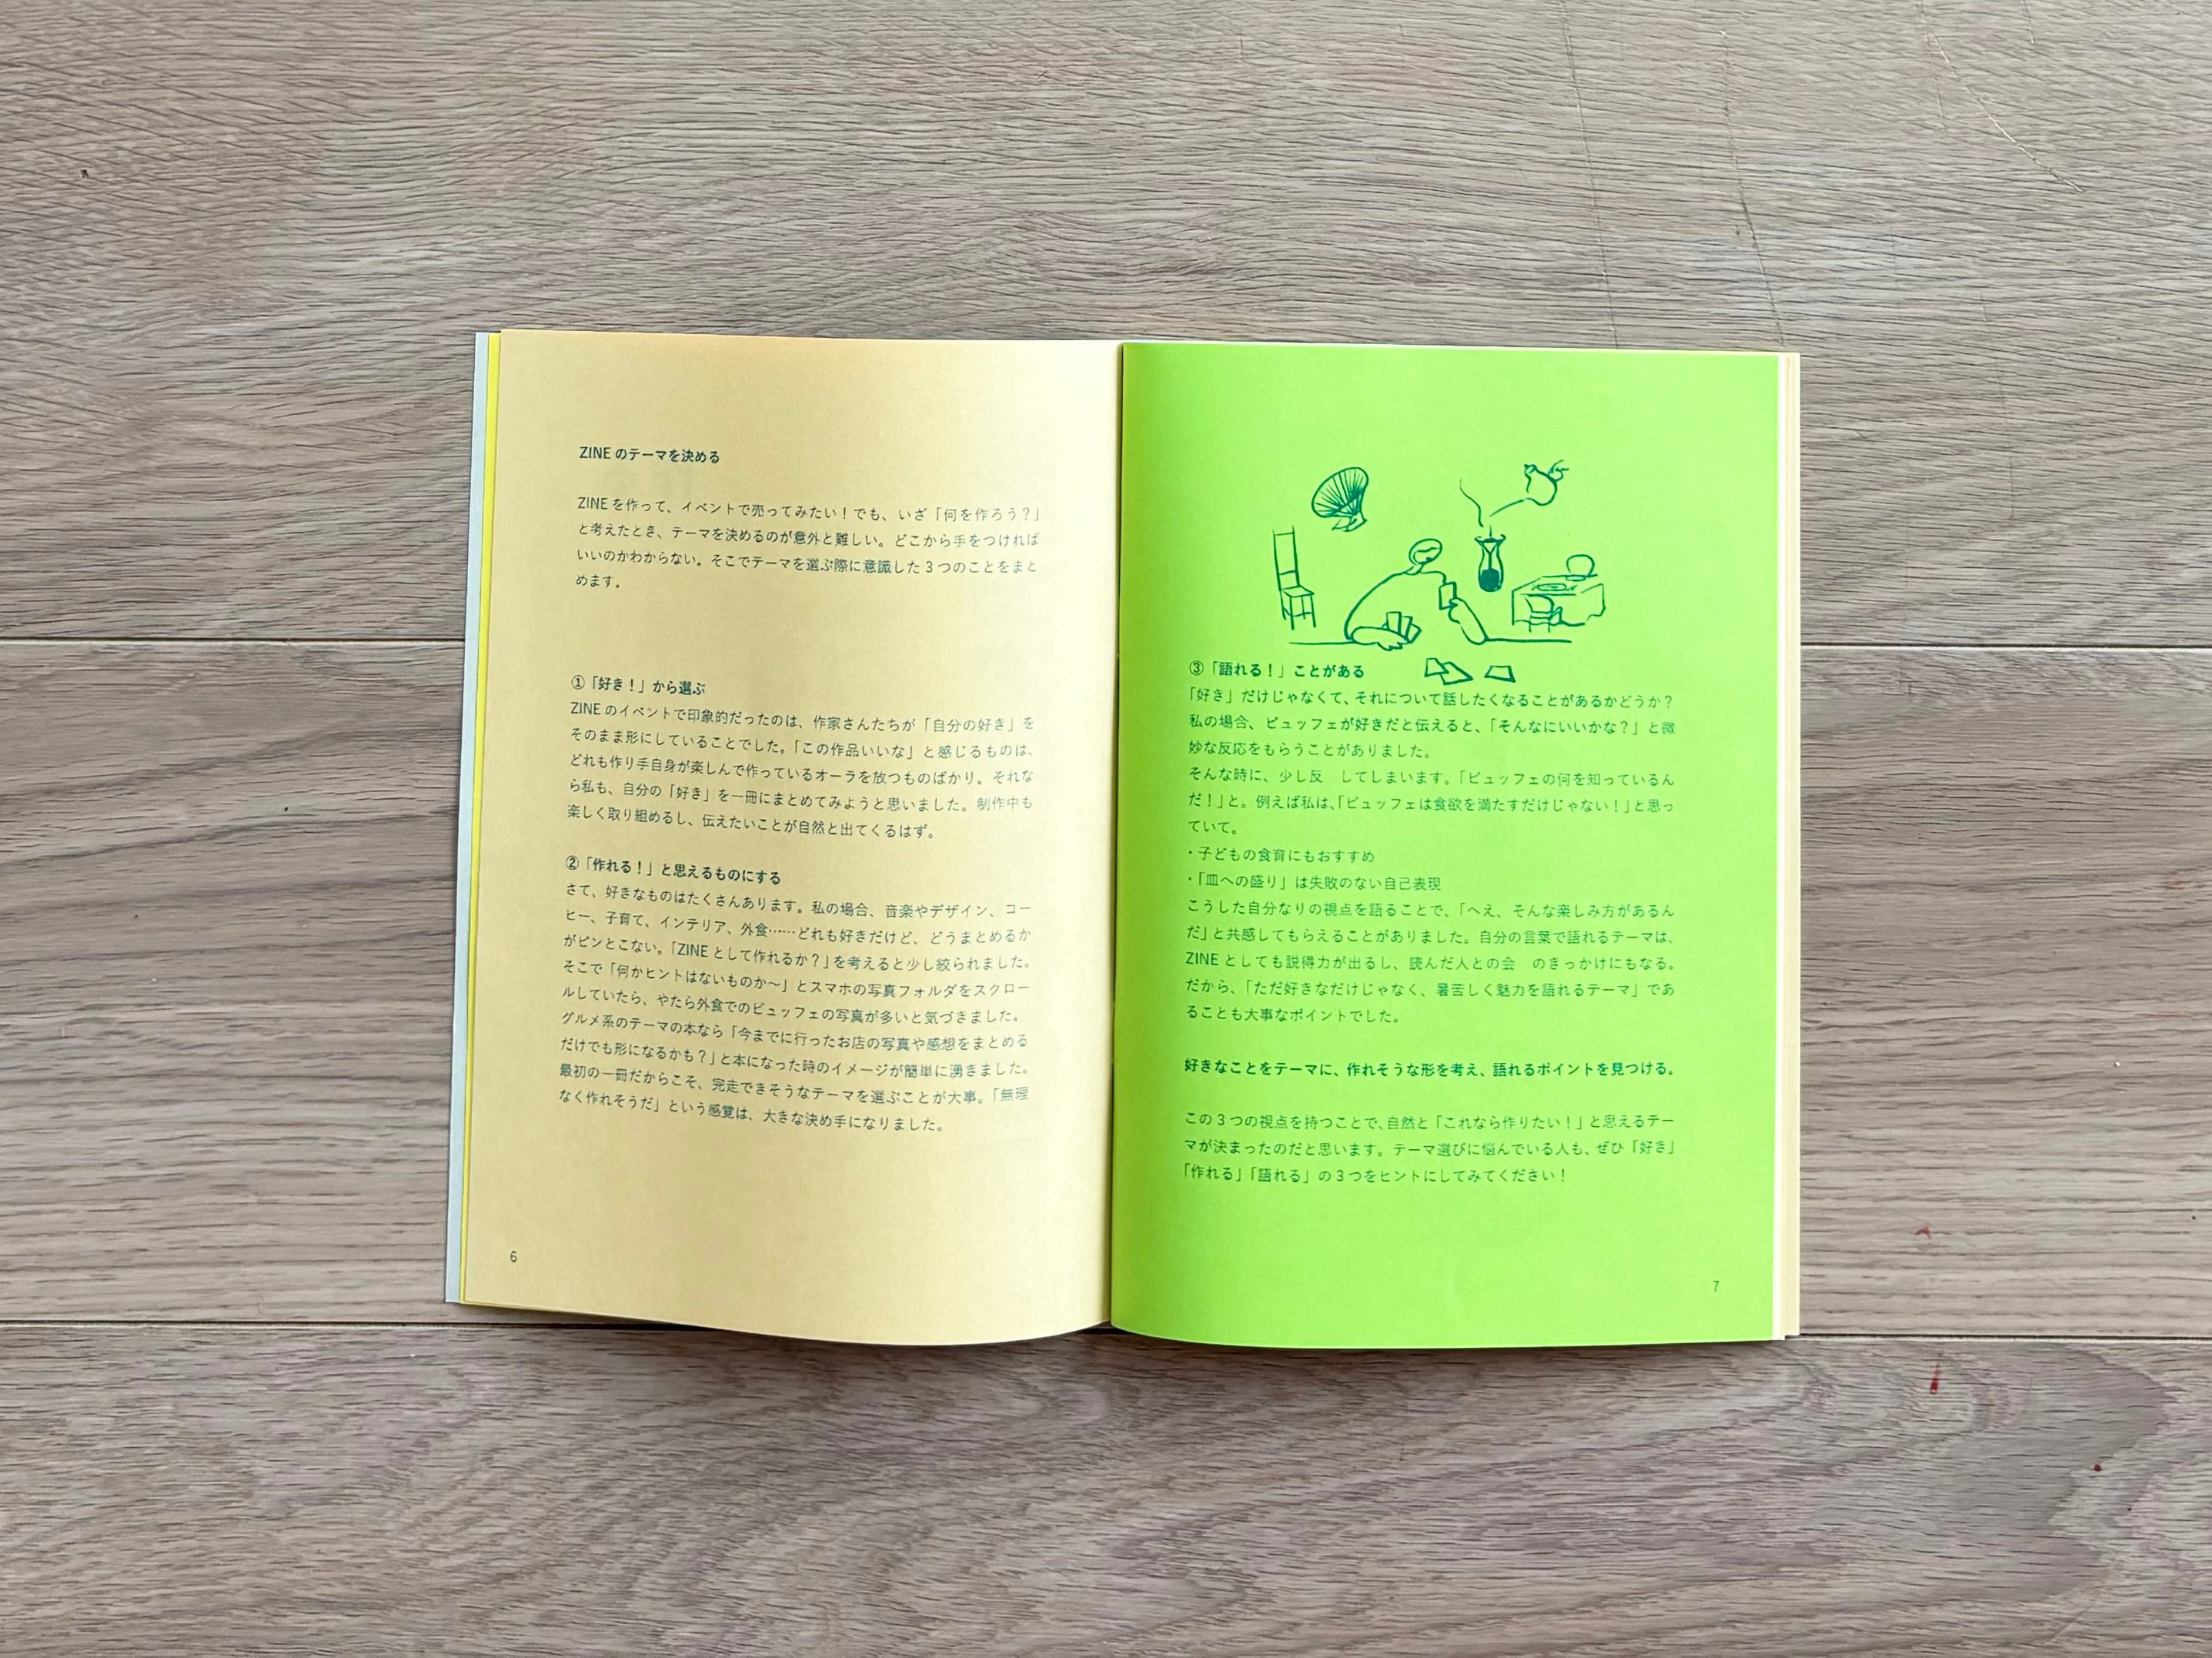 ZINE のテーマを決める
ZINE を作って、イベントで売ってみたい！でも、いざ「何を作ろう？」
と考えたとき、テーマを決めるのが意外と難しい。どこから手をつければ
いいのかわからない。そこでテーマを選ぶ際に意識した 3 つのことをまと
めます。
①「好き！」から選ぶ
ZINE のイベントで印象的だったのは、作家さんたちが「自分の好き」を
そのまま形にしていることでした。「この作品いいな」と感じるものは、
どれも作り手自身が楽しんで作っているオーラを放つものばかり。それな
ら私も、自分の「好き」を一冊にまとめてみようと思いました。制作中も
楽しく取り組めるし、伝えたいことが自然と出てくるはず。
②「作れる！」と思えるものにする
さて、好きなものはたくさんあります。私の場合、音楽やデザイン、コー
ヒー、子育て、インテリア、外食……どれも好きだけど、どうまとめるか
がピンとこない。「ZINE として作れるか？」を考えると少し絞られました。
そこで「何かヒントはないものか〜」とスマホの写真フォルダをスクロー
ルしていたら、やたら外食でのビュッフェの写真が多いと気づきました。
グルメ系のテーマの本なら「今までに行ったお店の写真や感想をまとめる
だけでも形になるかも？」と本になった時のイメージが簡単に湧きました。
最初の一冊だからこそ、完走できそうなテーマを選ぶことが大事。「無理
なく作れそうだ」という感覚は、大きな決め手になりました。
6
③「語れる！」ことがある
「好き」だけじゃなくて、それについて話したくなることがあるかどうか？
私の場合、ビュッフェが好きだと伝えると、「そんなにいいかな？」と微
妙な反応をもらうことがありました。
そんな時に、少し反　してしまいます。「ビュッフェの何を知っているん
だ！」と。例えば私は、「ビュッフェは食欲を満たすだけじゃない！」と思っ
ていて。
・子どもの食育にもおすすめ
・「皿への盛り」は失敗のない自己表現
こうした自分なりの視点を語ることで、「へえ、そんな楽しみ方があるん
だ」と共感してもらえることがありました。自分の言葉で語れるテーマは、
ZINE としても説得力が出るし、読んだ人との会　のきっかけにもなる。
だから、「ただ好きなだけじゃなく、暑苦しく魅力を語れるテーマ」であ
ることも大事なポイントでした。
好きなことをテーマに、作れそうな形を考え、語れるポイントを見つける。
この 3 つの視点を持つことで、自然と「これなら作りたい！」と思えるテー
マが決まったのだと思います。テーマ選びに悩んでいる人も、ぜひ「好き」
「作れる」「語れる」の 3 つをヒントにしてみてください！
7